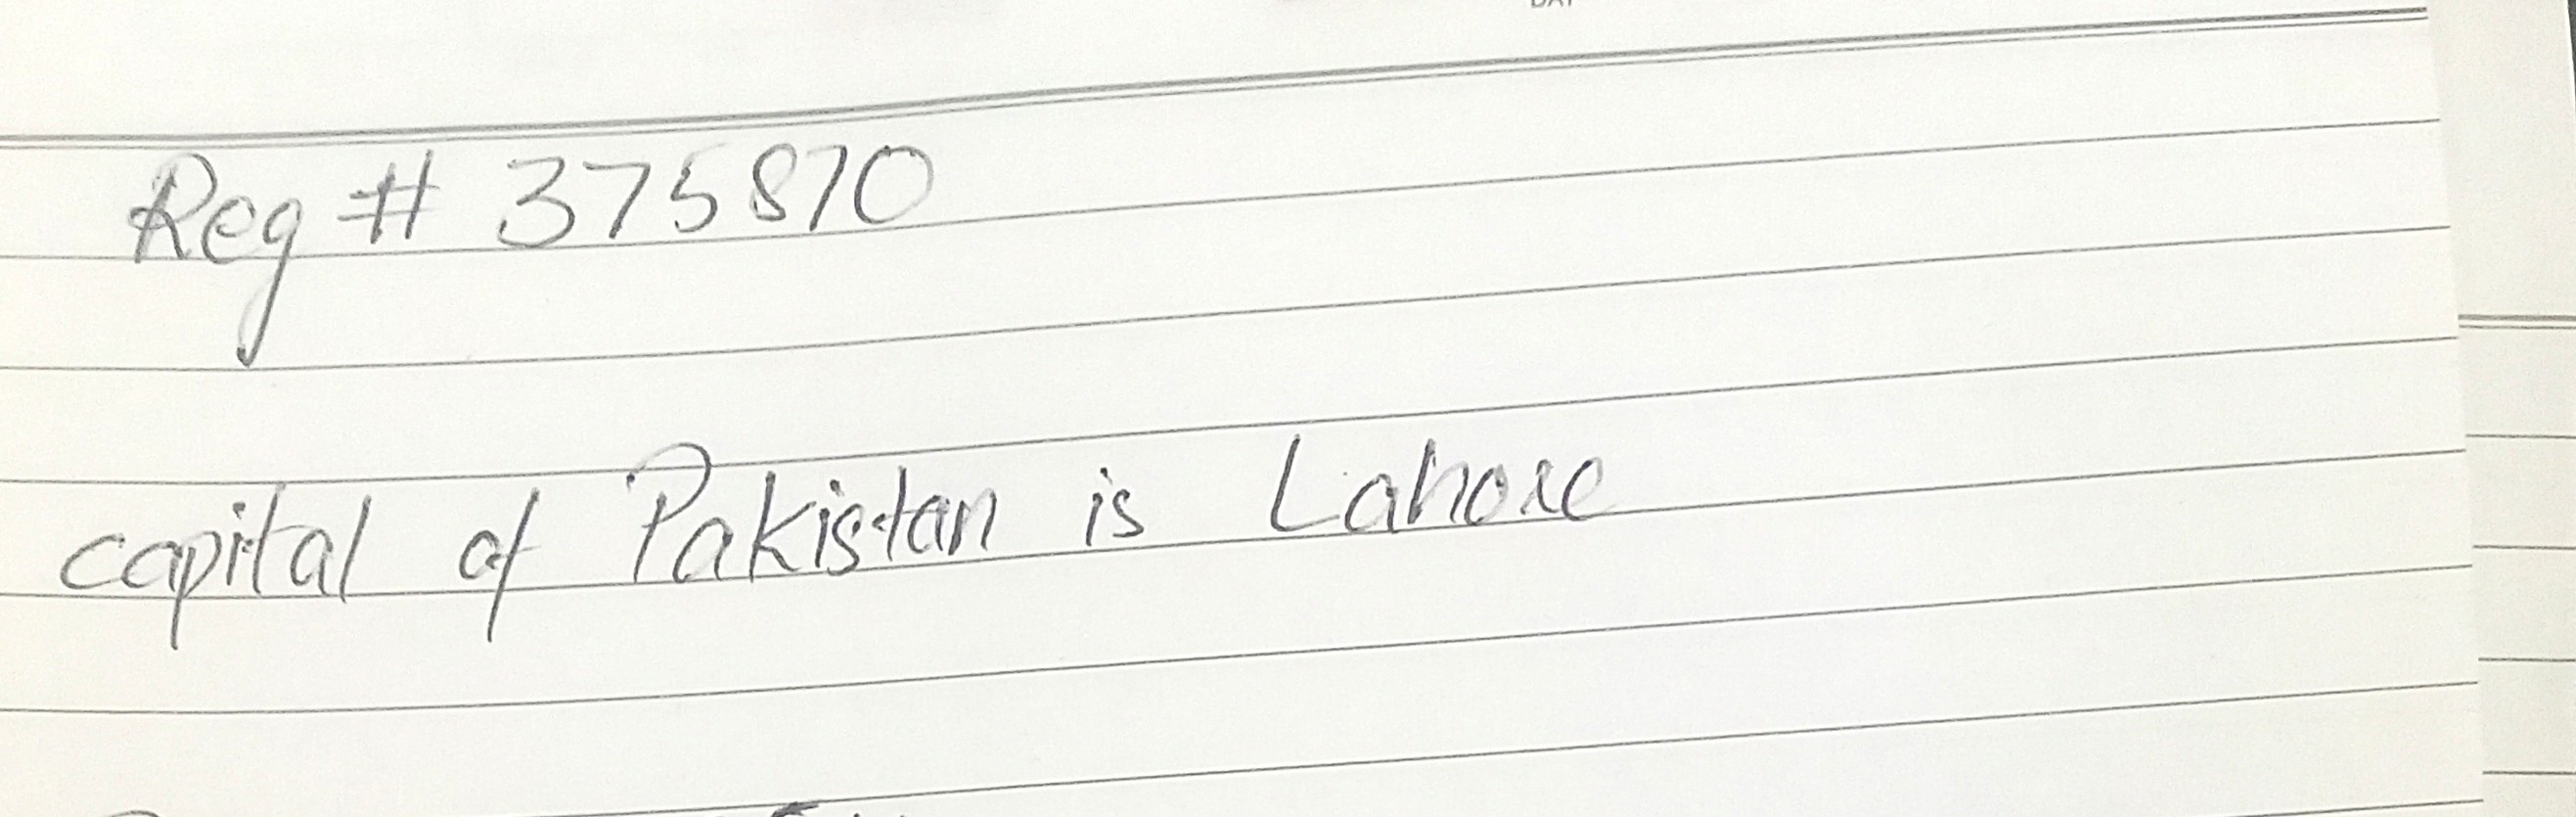 Reg # 375870
capital of Pakistan is Lahore